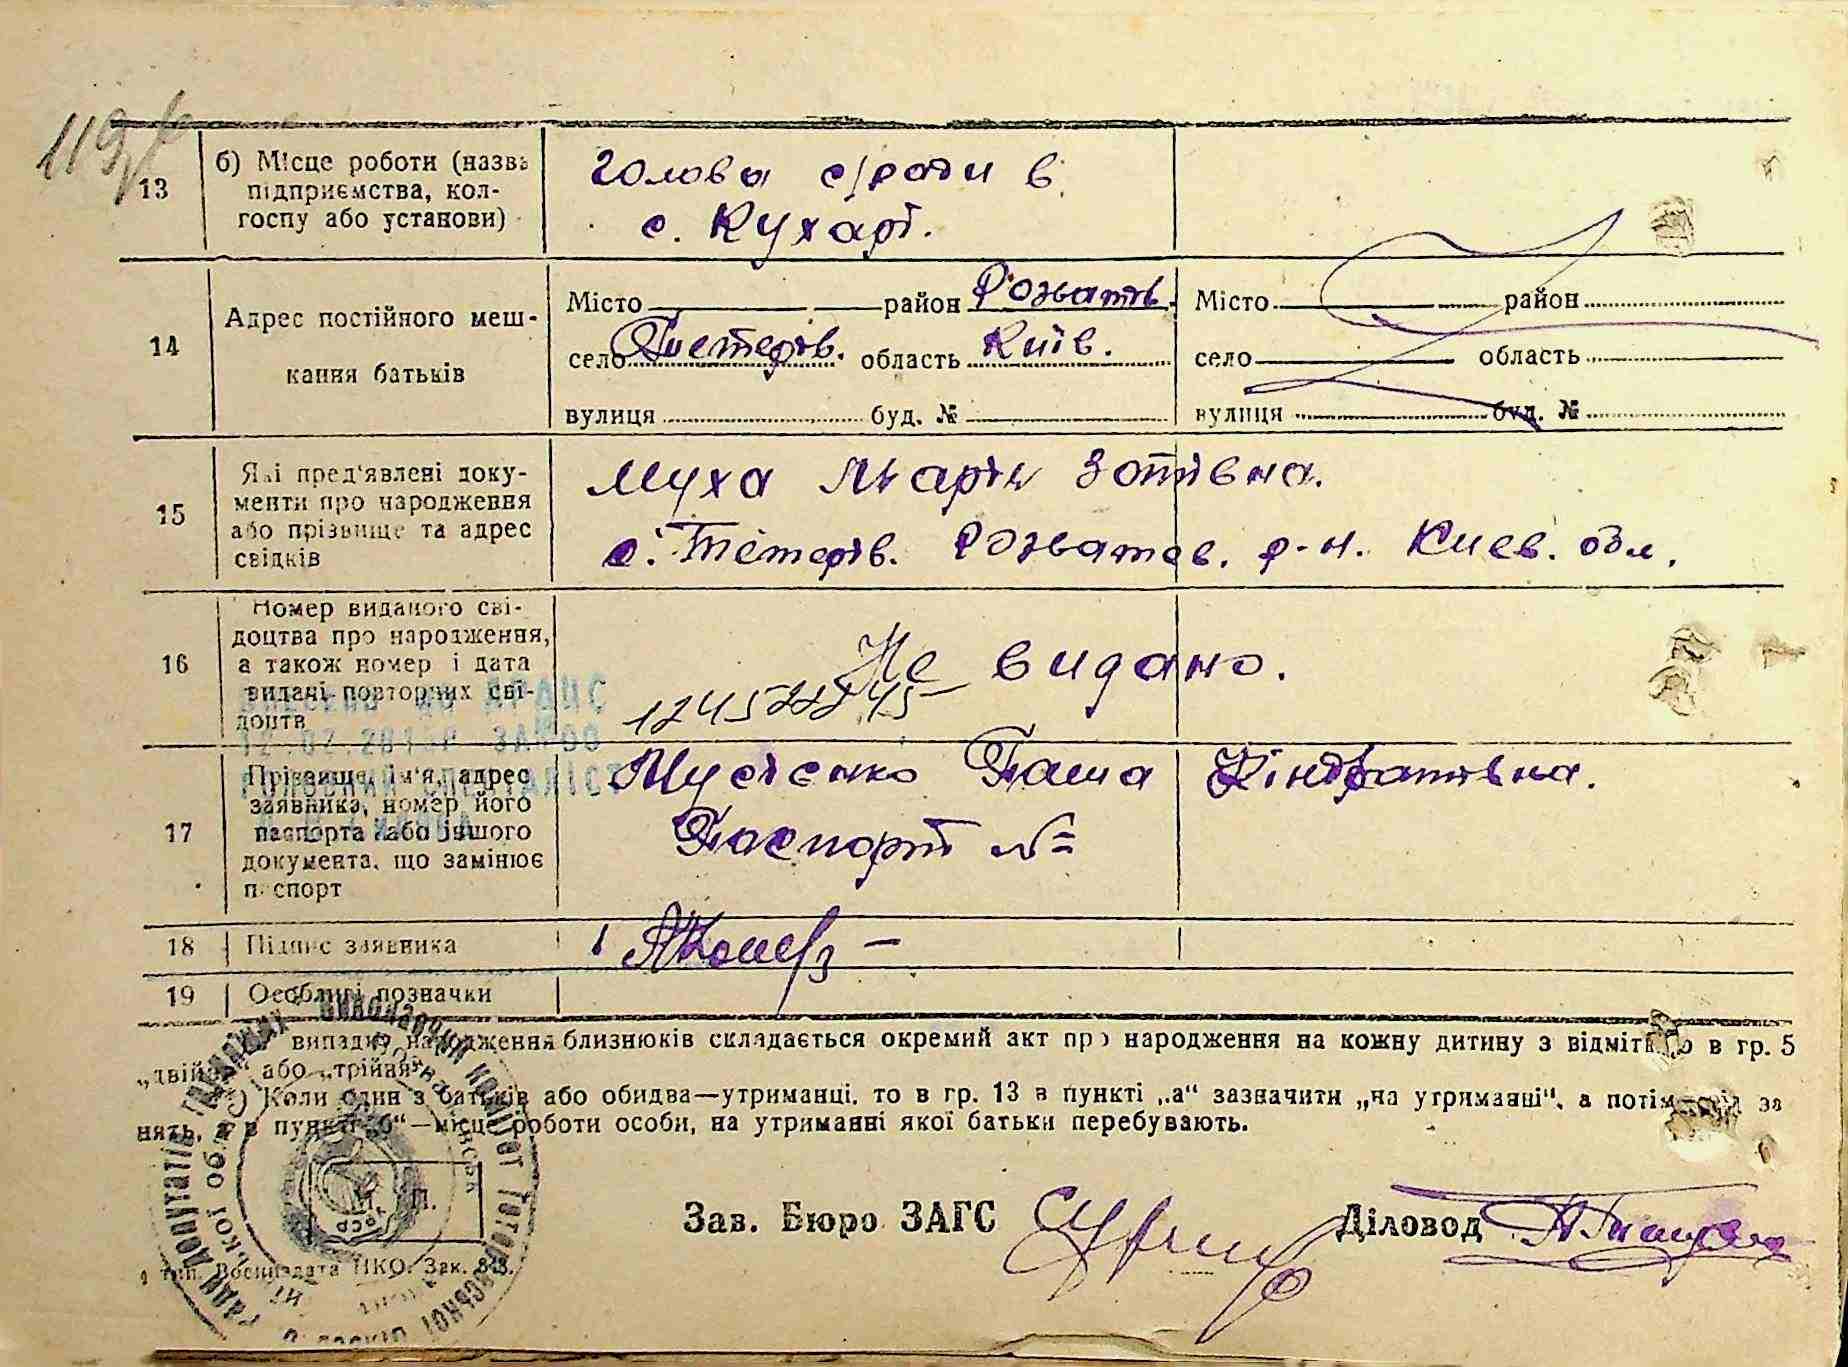 119
13
б) Місце роботи (назва
підприємства, кол-
госпу або установи)
Голова с/ради в
с. Кухарі.
14
Адрес постійного меш-
кання батьків
Місто район Розватів.
село Тетерів. область Київ.
вулиця буд. №
Місто район
село область
вулиця буд. №
15
Які пред'явлені доку-
менти про народження
або прізвище та адрес
свідків
Муха Марія Зотівна.
с. Тетерів. Розватев. р-н. Киев. обл.
16
Номер виданого сві-
доцтва про народження,
а також номер і дата
видачі повторних сві-
доцтв
Не видано.
17
Прізвище, ім'я, адрес
заявника, номер його
паспорта або іншого
документа, що замінює
паспорт
Мусієнко Паша Кіндратівна.
Паспорт №
ГОЛОВНИЙ СПЕЦІАЛІСТ
18
Підпис заявника
19
Особливі позначки
випадку народження близнюків складається окремий акт про народження на кожну дитину з відміткою в гр. 5
„двійня" або „трійня"
Коли один з батьків або обидва—утриманці, то в гр. 13 в пункті „а" зазначити „на утриманні", а потім за
нять, а в пункті „б"—місце роботи особи, на утриманні якої батьки перебувають.
Зав. Бюро ЗАГС
Діловод
П.
тип. Воениздата НКО. Зак.